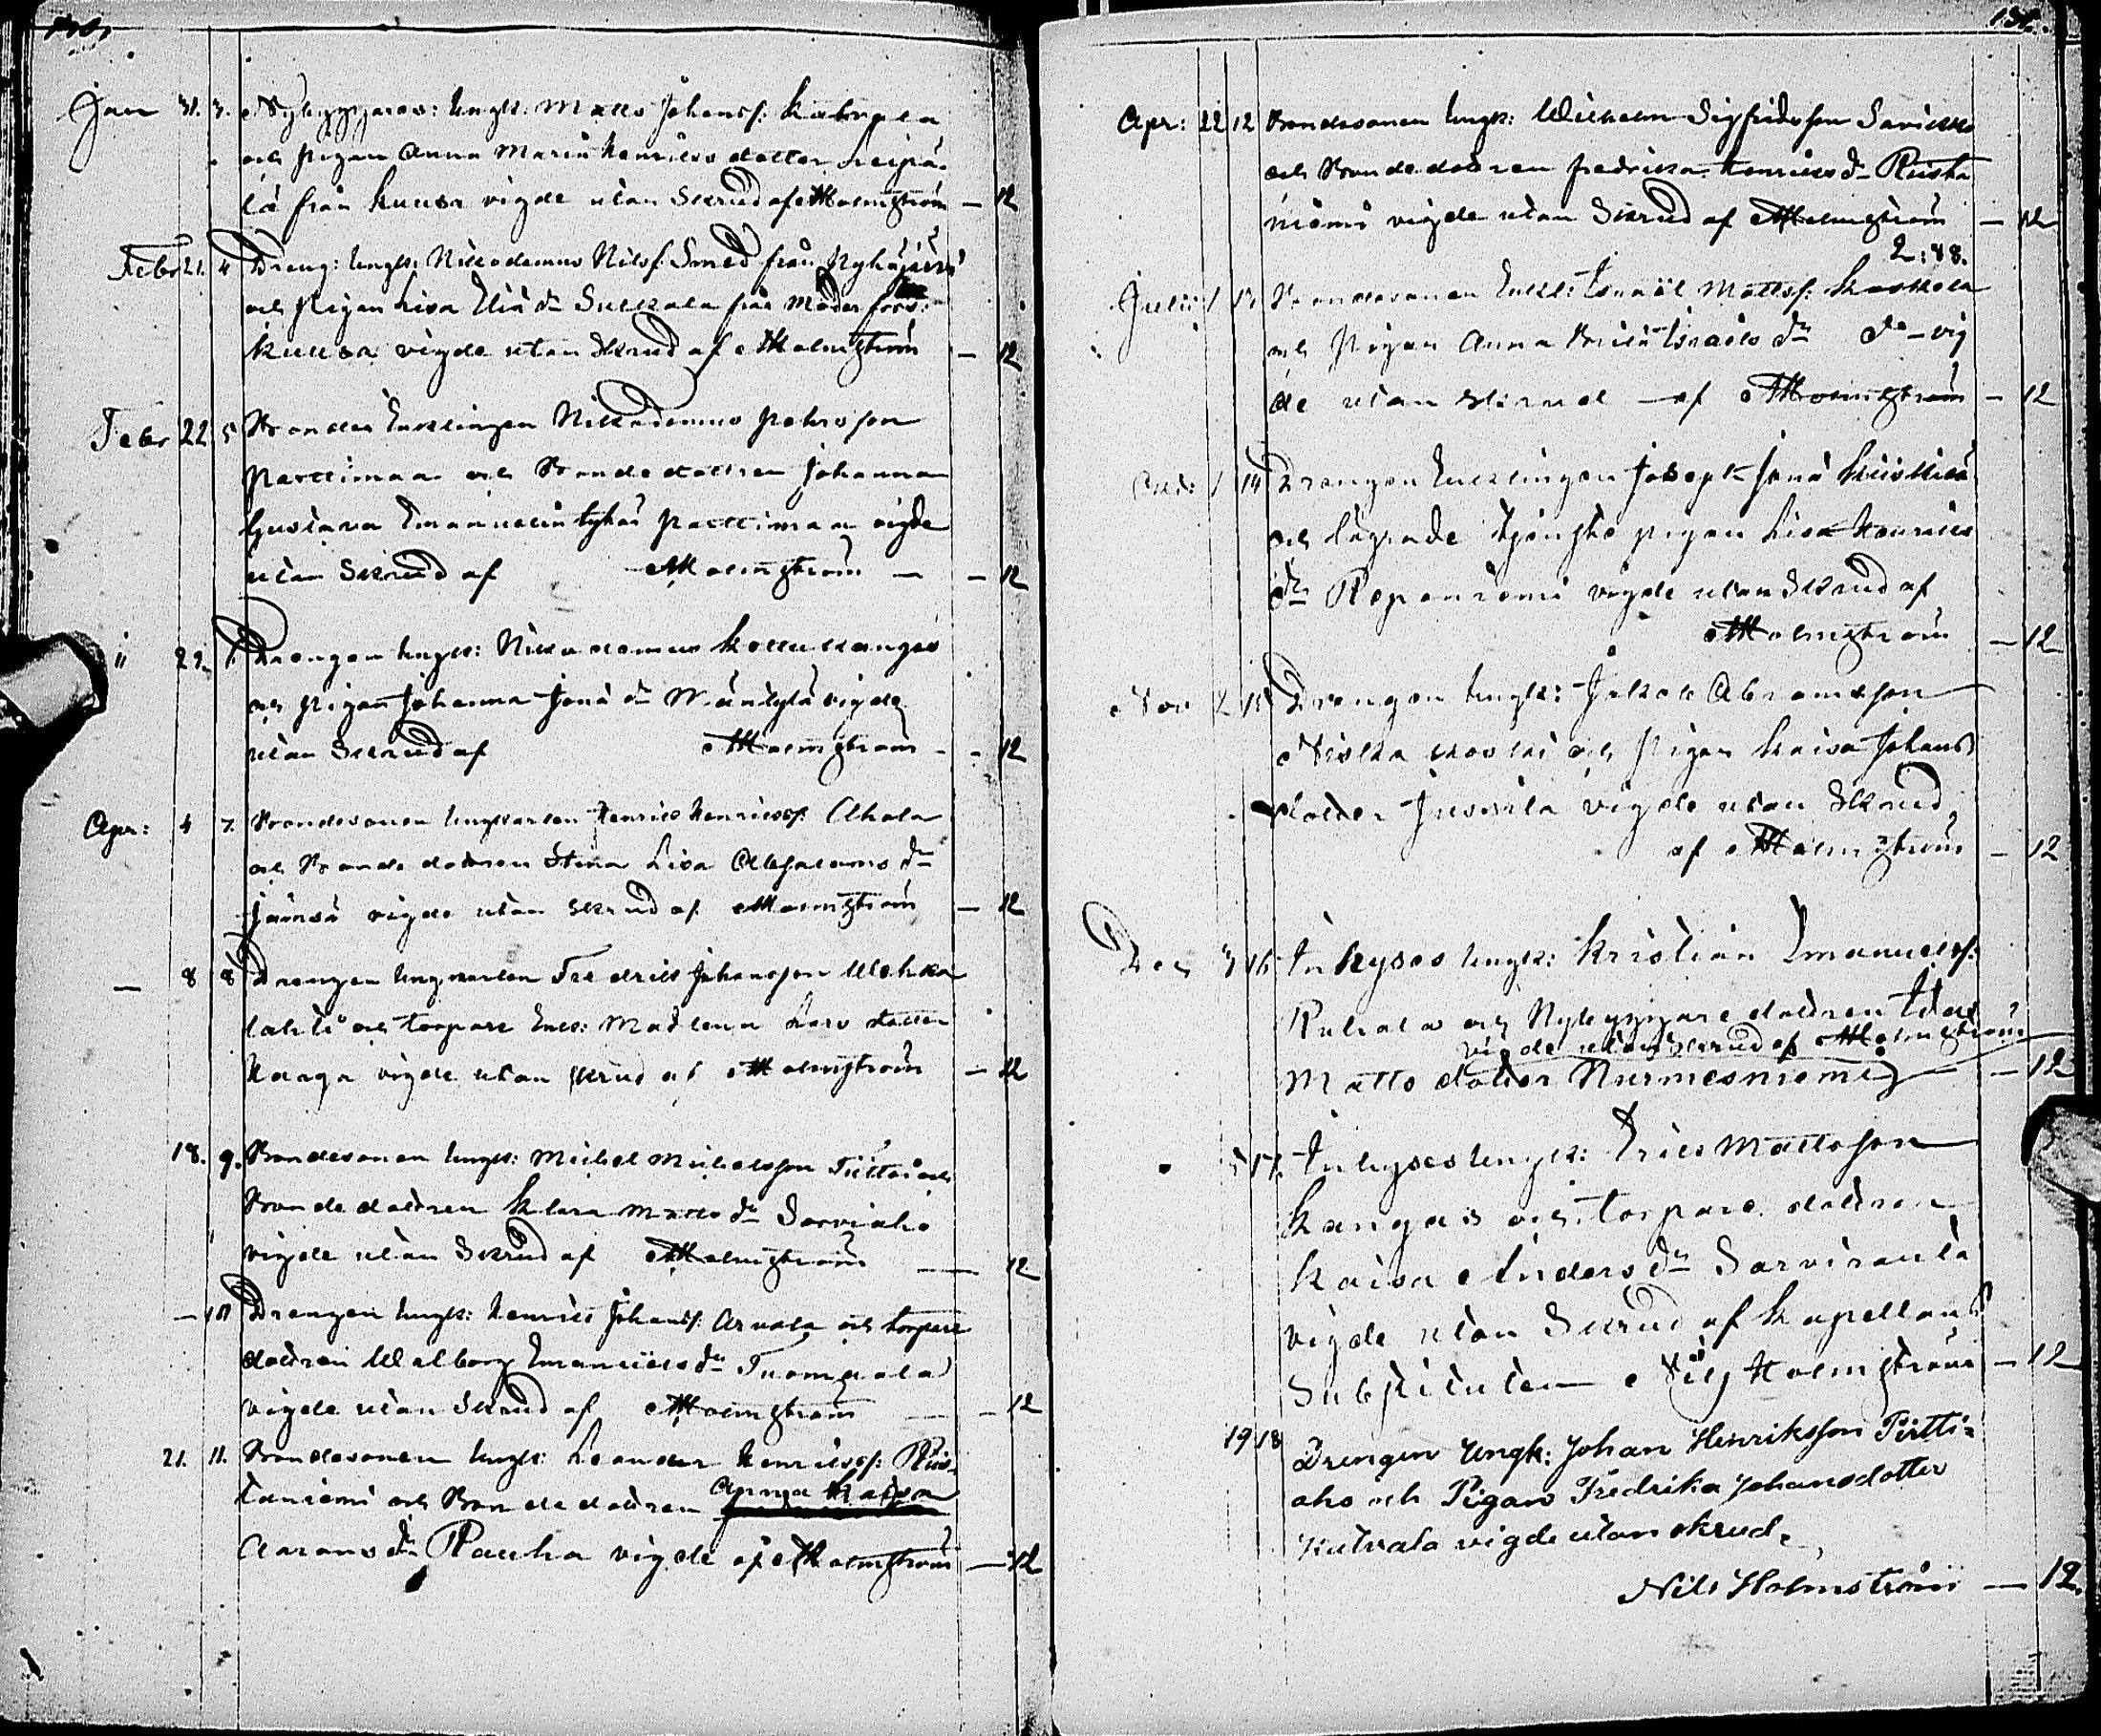 Jan 31. 3. Nybyggares: Ungk: Matts Johansf:
och pigan Anna Maria Henriksdotter Leipä-
lä från Kuusa vigde utan Skrud af NHolmström — 12
Febr 21. 4 Dreng: Ungk: Nikodemus Nilsf. Smed från
och Pigan Lisa Eliä dr från Moder
Kuusa vigde utan Skrud af NHolmström — 12
Febr 22 5 Bondes Enklingen Nikodemus Pehrsson
Parttimaa och Bondedottren Johanna
Gustava Emanuelin tytär Parttimaa vigde
utan Skrud af NHolmström — 12
" 29. 6 Drengen Ungk: Nikodemus
och Pigan Johanna Jonä dr Mäntylä vigde
utan Skrud af NHolmström - 12
Apr: 4 7. Bondesonen Ungkarlen Henrik Henriksf: Ahola
och Bondedottren Stina Lisa dr
Jämsä vigde utan Skrud af NHolmström — 12
— 8 8 Drengen Ungkarlen Fredrik Johansson
lahti och torpare Enk: Madlena Lars dotter
Kanga vigde utan skrud af NHolmström — 12
18. 9. Bondesonen Ungk: Mickel Mickelsson och
Bondedottren Klara Matts dr Sorviaho
vigde utan Skrud af NHolmström — 12
— 10 Drengen Ungk: Henrik Johansf: Arvola och torpare
dottren Walborg Emanuels dr Tuomaala
vigde utan Skrud af NHolmström — 12
21. 11. Bondesonen Ungk: Leander Henriksf: Ris-
taniemi och Bondedottren Anna Kaisa
Aarons dr Rauha vigde af NHolmström — 12
Apr: 22 12 Bondesonen Ungk: Wilhelm Sigfridsson
och Bondedottren Fredrika Henriks dr Rista
niemi vigde utan Skrud af NHolmström — 12
2:48.
Julii 1 13 Bondesonen Enkl: Israël Mattsf: Koskela
och Pigan Anna Brita Israels dr do vig
de utan skrud af NHolmström — 12
1 14 Drengen Enklingen Joseph Jonä
och lägrade tjenste pigan Lisa Henriks
dr Repaniemi vigde utan Skrud af
NHolmström — 12
Nov 2 15 Drengen Ungk: Jakob Abramsson
Niskakoski och Pigan Kaisa Johans
dotter Jussila vigde utan Skrud
af NHolmström — 12
Dec 3 16 Inhyses Ungk: Kristian Emanuelsf:
och Nybyggare dottren Ida
vigde utan Skrud af NHolmström
Matts dotter Nurmesniemi — 12
5 17. Inhyses Ungk: Erik Mattsson
Kangas och torpare dottren
Kaisa Anders dr Sarviranta
vigde utan Skrud af Kapellans
Substituten Nils Holmström — 12
19 18 Drengen Ungk: Johan Henriksson Pirtti=
aho och Pigan Fredrika Johansdotter
Kutvala vigde utan skrud.
Nils Holmström — 12.